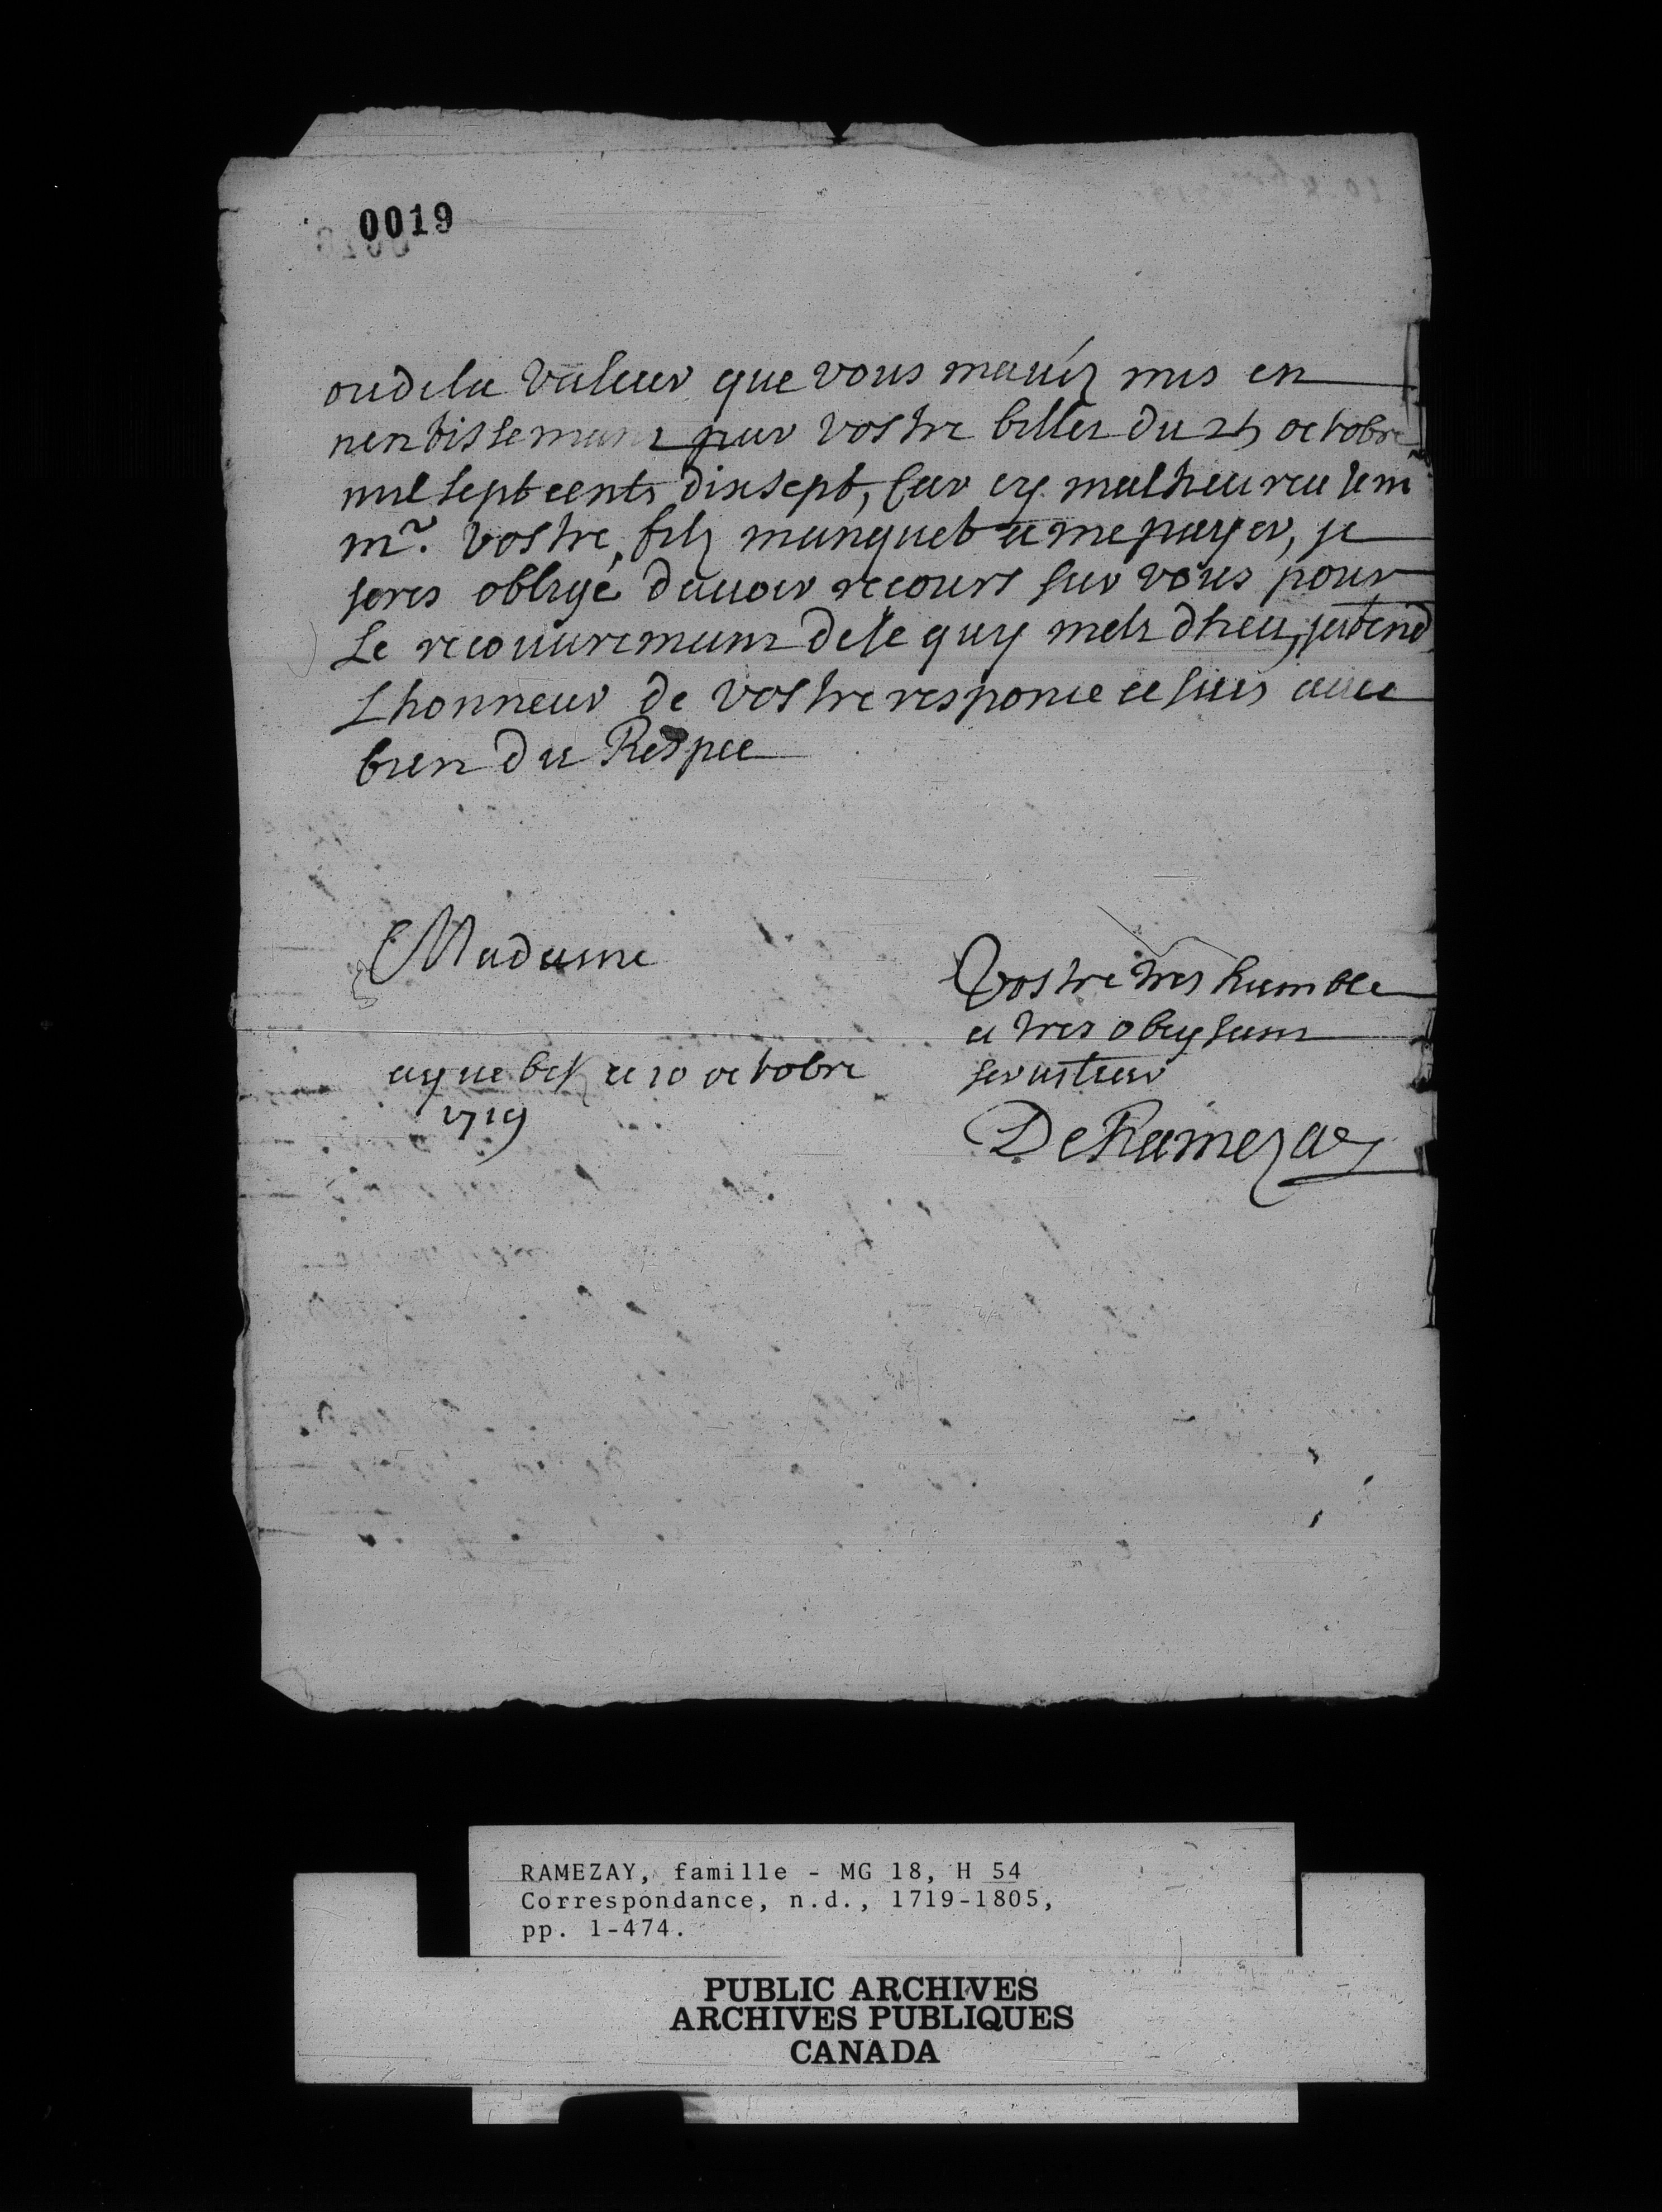 0019
ou de la valeur que vous maviéz mis en
nentissemant par vostre billet du 25 octobre
mil sept cents dix sept, Car cy malheureusem
mr. vostre filz manquet a me payer, je
seres obligé davoir recours sur vous pour
Le recouuremant de se quy mets dheu, jatend
Lhonneur de vostre response et suis avec
bien du Respec
Madame
Vostre tres humble
et tres obeysant
seruiteur
DeRamezay
a quebek ce 10 octobre
1719
RAMEZAY, famille - MG 18, H 54
Correspondance, n.d., 1719-1805,
pp. 1-474.
PUBLIC ARCHIVES
ARCHIVES PUBLIQUES
CANADA